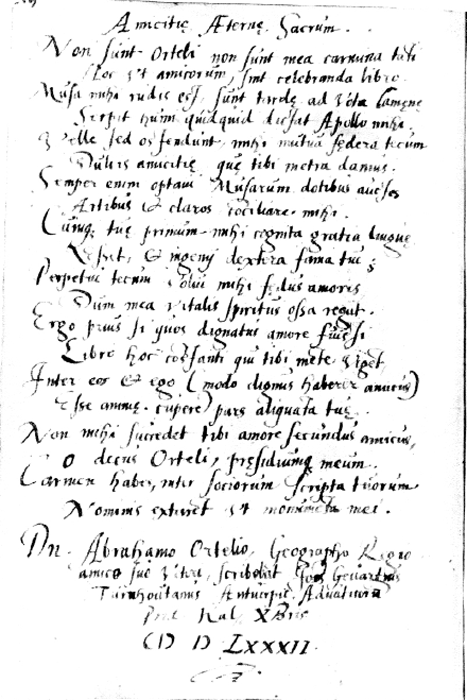 Amicitię Æternę Sacrum.
Non sunt Orteli non sunt mea carmina tali
Hoc ut amicorum, sint celebranda libro.
Musa mihi rudis est, sunt tardę ad vota Camęnę
Serpit humi quidquid dictat Apollo mihi.
velle sed ostendunt, mihi mutua fędera tecum
Dulcis amicitię quę tibi metra damus.
Semper enim optavi Musarum dotibus auctos
Artibus & claros sociare mihi.
Cumq tuę primum mihi cognita gratia linguę
& ingenij dextera fama tui;
Perpetui tecum volui mihi fędus amoris
Dum mea vitalis spiritus ossa reget.
Ergo prius si quos dignatus amore fuisti
Libro hoc
Inter eos & ego (modo dignus haberer amicus)
Esse animę cupere) pars aliquata tuę.
Non mihi succedet tibi amore secundus amicus,
O decus Orteli, pręsidiumq meum.
Carmen habe, inter sociorum scripta tuorum
Nominis extaret ut monumenta mei.
Dn. Abrahamo Ortelio, Geographo Regio
amico suo scribebat Gevartius
Turnhoutanus Antverpię Aduaticorum
Prid. Kal. XBris
CIƆ IƆ LXXXII.